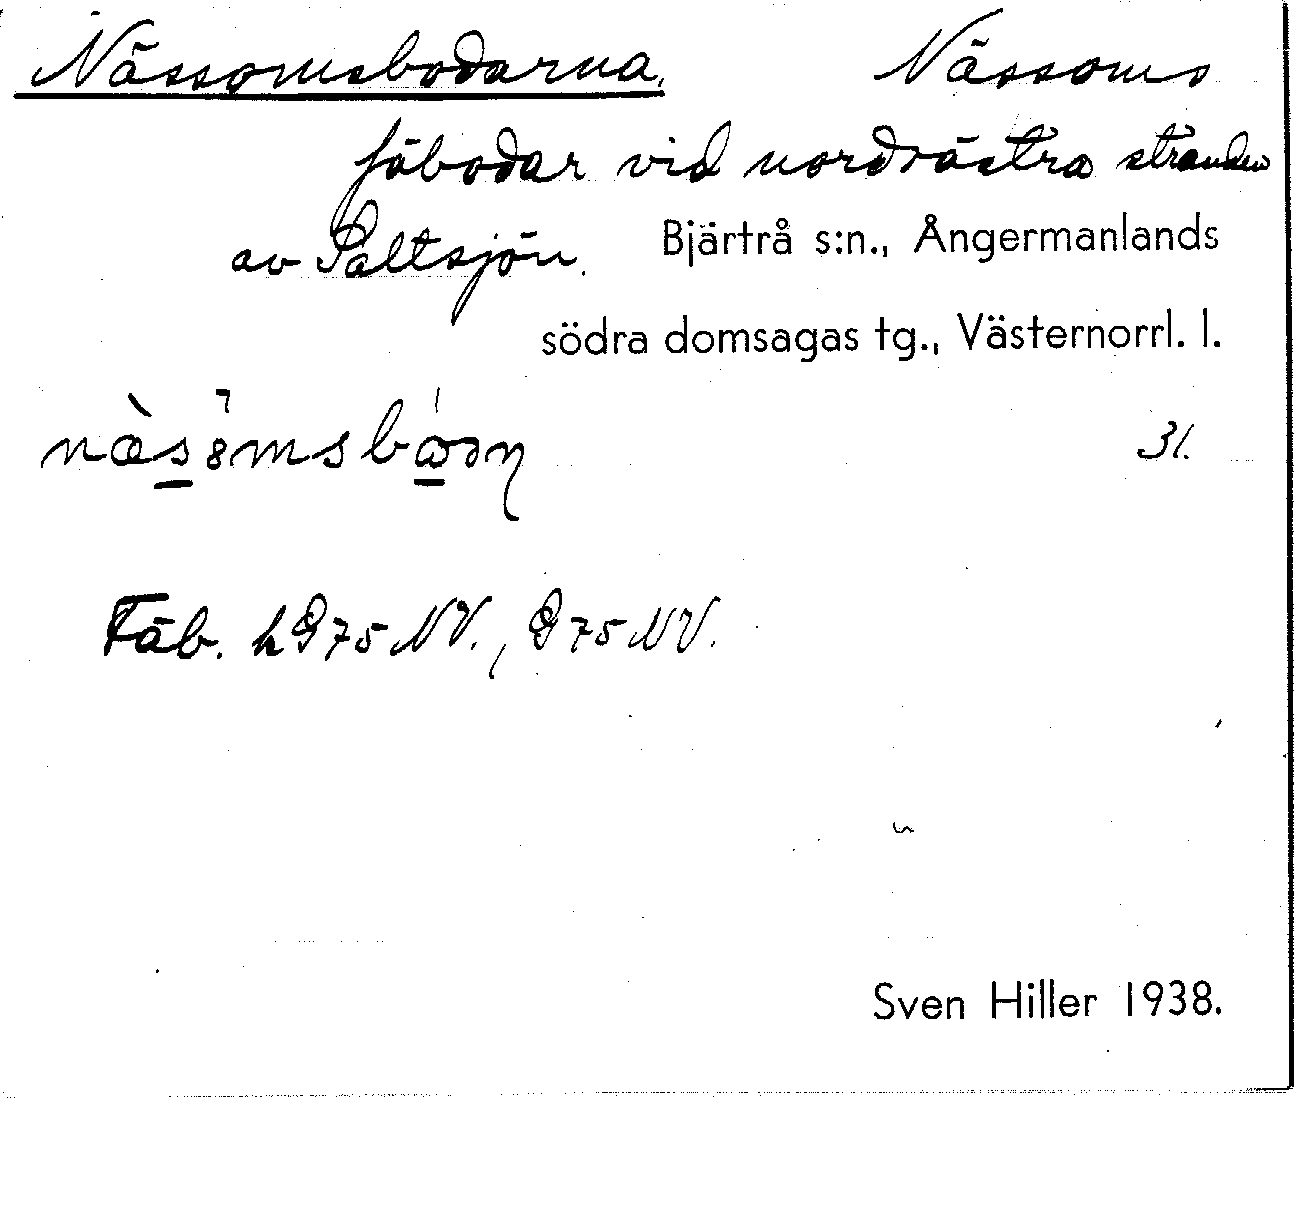 Nässomsbodarna. Nässoms
fäbodar vid nordvästra stranden
av Paltsjön. Bjärtrå s:n., Ångermanlands
södra domsagas tg., Västernorrl. l.
31.
Fäb. h G75 NV., G 75 NV.
Sven Hiller 1938.